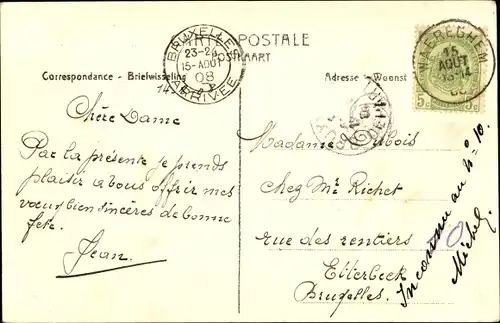 CARTE POSTALE
POSTKAART
Correspondance - Briefwisseling
Adresse - Woonst
BRUXELLES
23-24
15-AOUT
08
ARRIVÉE
WAEREGHEM
15
AOUT
08
5c 5c
Chère Dame
Par la présente je prends
plaisir a vous offrir mes
vœux bien sincères de bonne
fête.
Jean.
Madame Dubois
Chez Mr Richet
rue des rentiers
Etterbeek
Bruxelles.
Inconnu au no 10.
Michel.